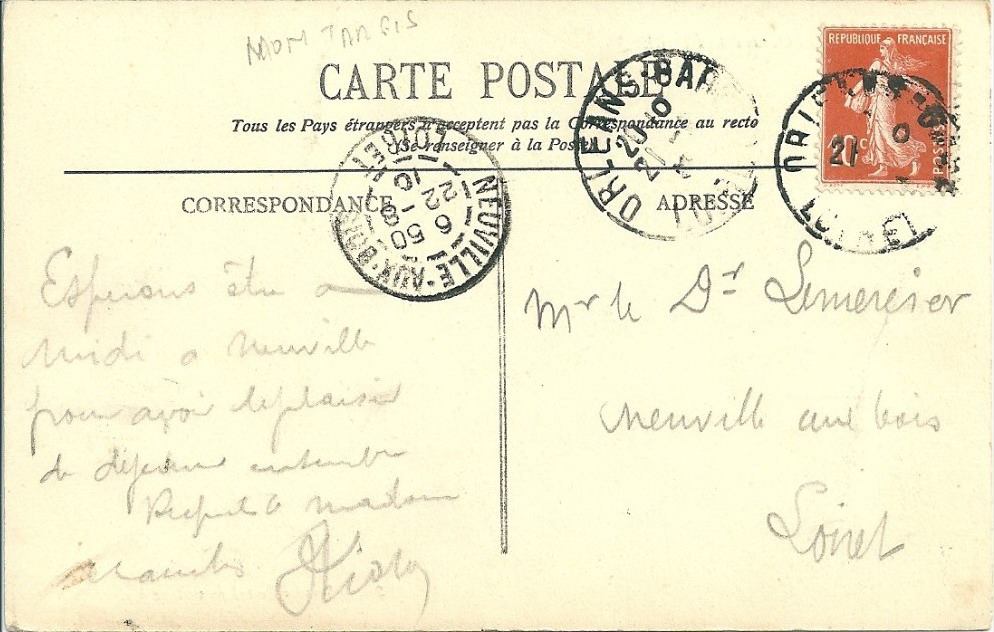 MONTARGIS
CARTE POSTALE
Tous les Pays étrangers n'acceptent pas la Correspondance au recto
(Se renseigner à la Poste)
CORRESPONDANCE
ADRESSE
REPUBLIQUE FRANÇAISE
10c
POSTES
ORLEANS-BAN
20
21
LOIRET
NEUVILLE-AUX-BOIS
6 50
22-8
10
LOIRET
Esperons être a
midi a Neuville
pour avoir le plaisir
de dejeuner ensemble
Respects a madame
Mr le Dr
Neuville aux bois
Loiret